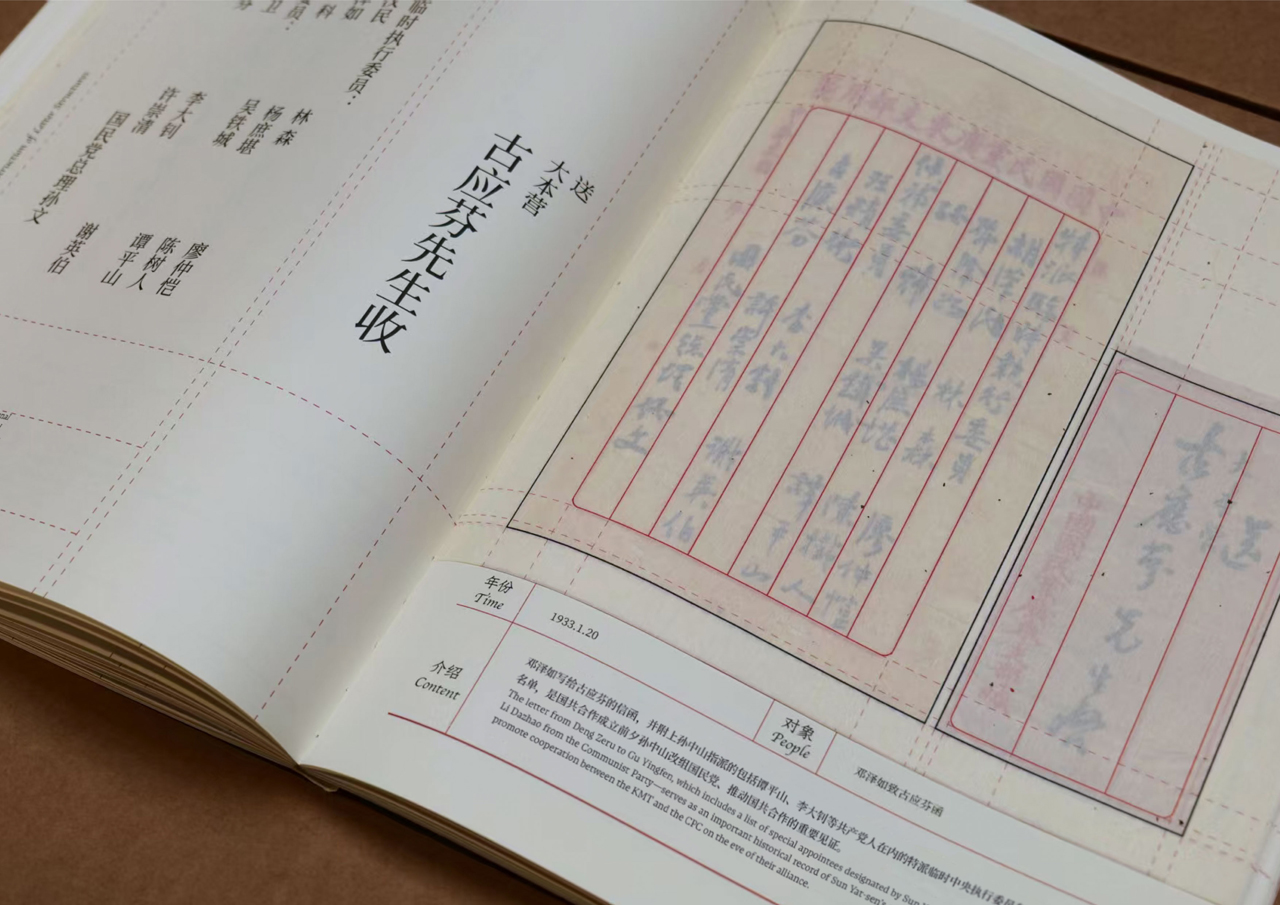 送
大本营
古应芬先生收
临时执行委员：
林森 廖仲恺
杨庶堪 陈树人
吴铁城 谭平山
李大钊
许崇清 谢英伯
国民党总理孙文
特派
臨時執行委員
林森 廖仲愷
楊庶堪 陳樹人
吳鐵城 譚平山
李大釗
許崇清 謝英伯
國民黨總理孫文
送
古應芬先生
年份
Time
1933.1.20
介绍
Content
邓泽如写给古应芬的信函，并附上孙中山指派的包括谭平山、李大钊等共产党人在内的特派临时中央执行委员
名单，是国共合作成立前夕孙中山改组国民党、推动国共合作的重要见证。
The letter from Deng Zeru to Gu Yingfen, which includes a list of special appointees designated by Sun
Li Dazhao from the Communist Party—serves as an important historical record of Sun Yat-sen's
promote cooperation between the KMT and the CPC on the eve of their alliance.
对象
People
邓泽如致古应芬函